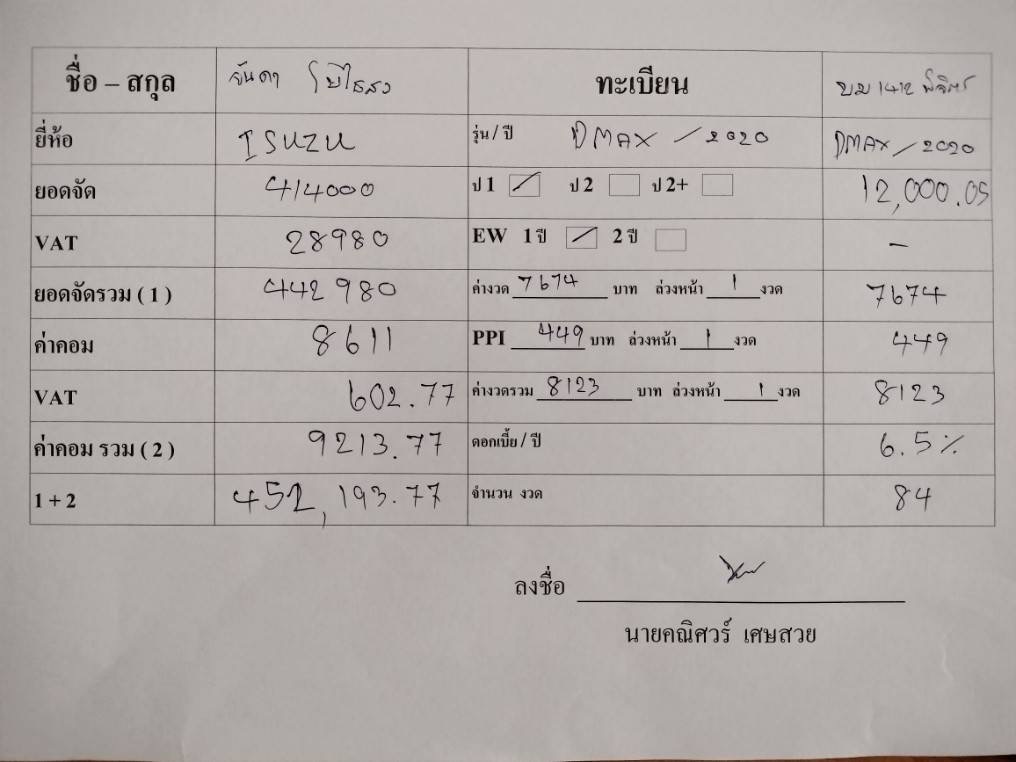 ชื่อ – สกุล จันดา โปไธสง ทะเบียน บม 1412 พิจิตร
ยี่ห้อ ISUZU รุ่น / ปี DMAX / 2020 DMAX / 2020
ยอดจัด 414000 ป 1 ป 2 ป 2+ 12,000.05
VAT 28980 EW 1 ปี 2 ปี –
ยอดจัดรวม ( 1 ) 442980 ค่างวด 7674 บาท ล่วงหน้า 1 งวด 7674
ค่าคอม 8611 PPI 449 บาท ล่วงหน้า 1 งวด 449
VAT 602.77 ค่างวดรวม 8123 บาท ล่วงหน้า 1 งวด 8123
ค่าคอม รวม ( 2 ) 9213.77 ดอกเบี้ย / ปี 6.5%
1 + 2 452,193.77 จำนวน งวด 84
ลงชื่อ
นายคณิศวร์ เศษสวย